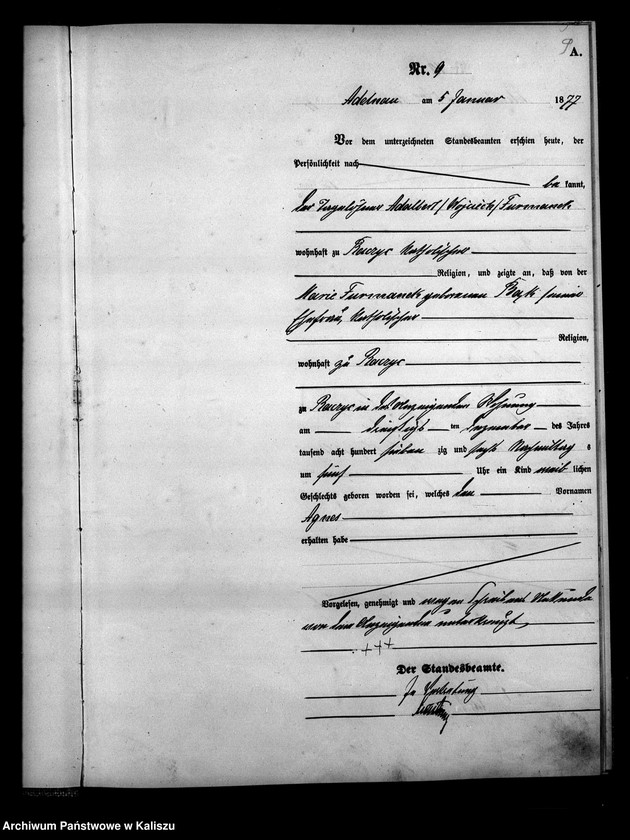 A.
Nr. 9
Adelnau am 5 Januar 1877
Vor dem unterzeichneten Standesbeamten erschien heute, der
Persönlichkeit nach
be kannt,
der Tagelöhner Adalbert /Wojciech/ Furmanek
wohnhaft zu katholischer
Religion, und zeigte an, daß von der
Marie Furmanek geborenen Bąk seiner
Ehefrau, katholischer
Religion,
wohnhaft zu
zu in des Anzeigenden Wohnung
am ten Dezember des Jahres
tausend acht hundert sieben zig und sechs Nachmittag s
um fünf Uhr ein Kind weib lichen
Geschlechts geboren worden sei, welches den Vornamen
Agnes
erhalten habe
Vorgelesen, genehmigt und wegen Schreibens Unkunde
von dem Anzeigenden unterkreuzt,
+++
Der Standesbeamte.
In Vertretung
Archiwum Państwowe w Kaliszu